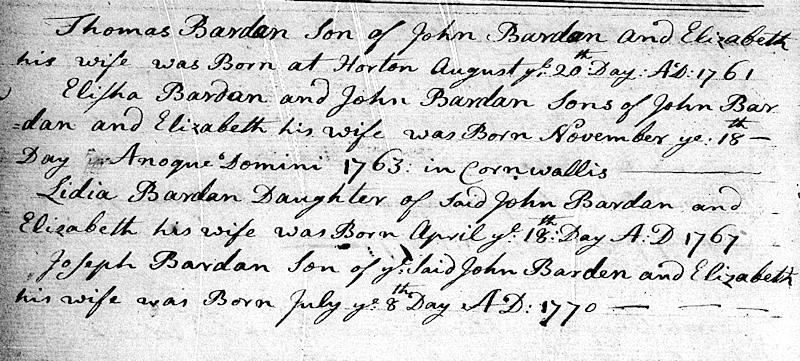 Thomas Bardan Son of John Bardan and Elizabeth
his wife was Born at Horton August ye: 20th: Day: AD: 1761
Elisha Bardan and John Bardan Sons of John Bar
=dan and Elizabeth his wife was Born November ye: 18th —
Day Anoque Domini 1763: in Cornwallis —
Lidia Bardan Daughter of Said John Bardan and
Elizabeth his wife was Born April ye: 18th: Day A:D 1767
Joseph Bardan Son of ye: Said John Barden and Elizabeth
his wife was Born July ye 8th Day AD: 1770 — — —